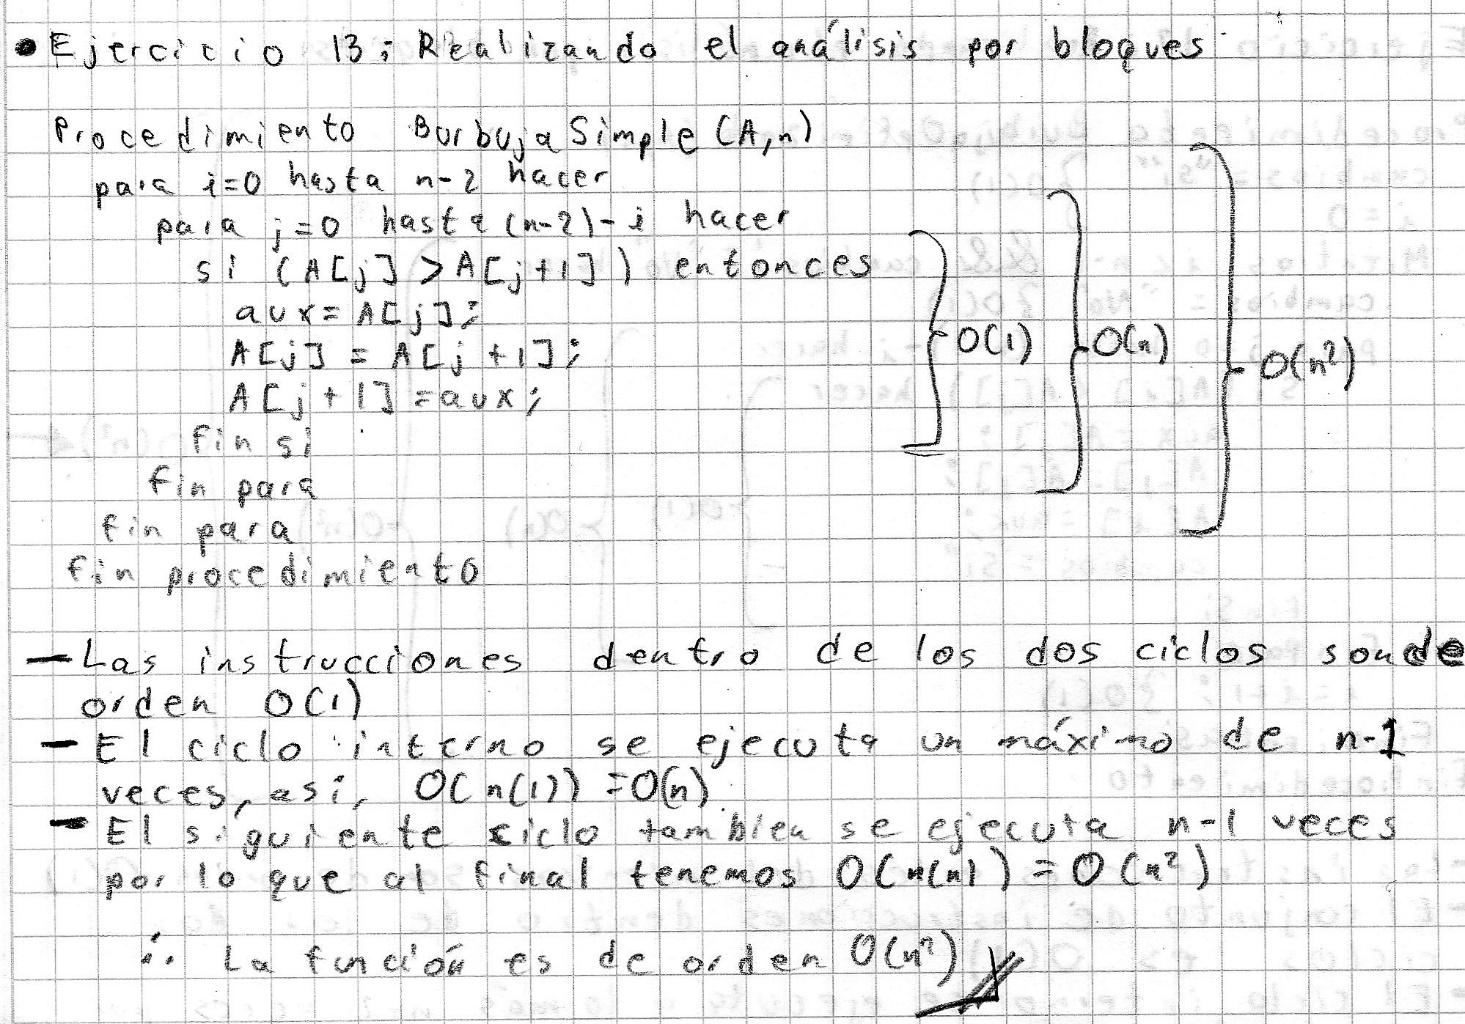 • Ejercicio 13: Realizando el análisis por bloques
Procedimiento BurbujaSimple(A,n)
para i=0 hasta n-2 hacer
para j=0 hasta (n-2)-i hacer
si (A[j] > A[j+1]) entonces
aux = A[j];
A[j] = A[j+1];
A[j+1] = aux;
fin si
fin para
fin para
fin procedimiento
O(1)
O(n)
O(n²)
- Las instrucciones dentro de los dos ciclos son de
orden O(1)
- El ciclo interno se ejecuta un máximo de n-1
veces, así, O(n(1)) = O(n)
- El siguiente ciclo tambien se ejecuta n-1 veces
por lo que al final tenemos O(n(n)) = O(n²)
∴ La función es de orden O(n²)